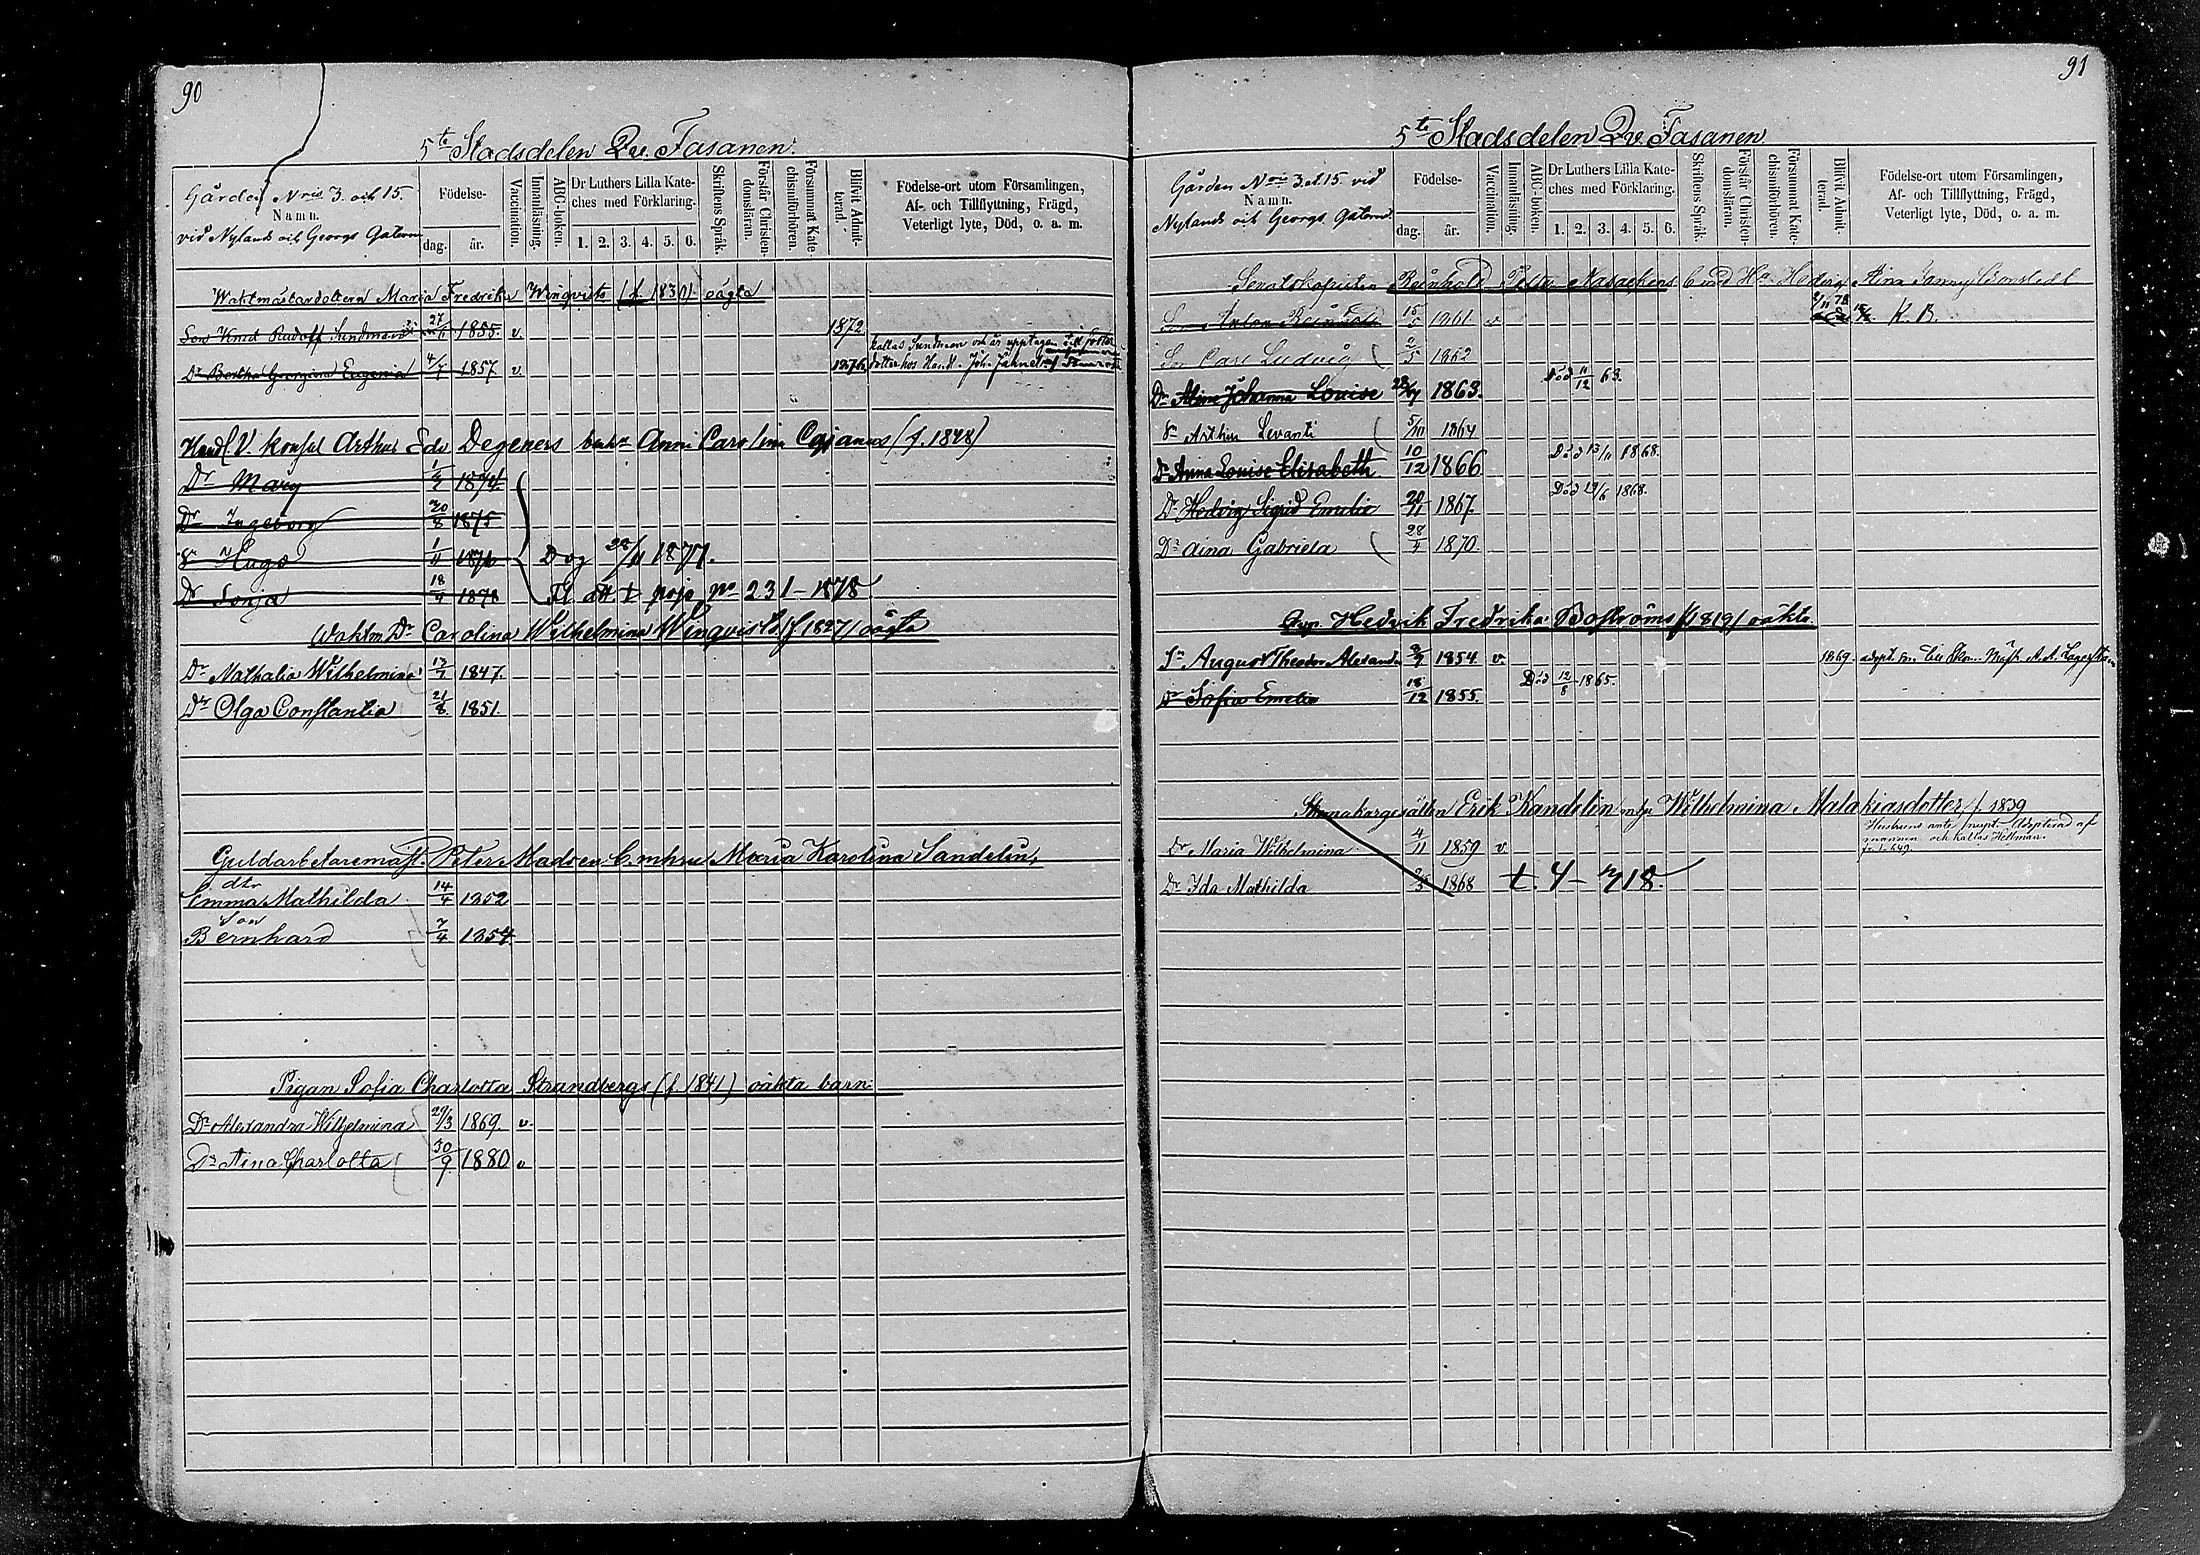 90
5te Stadsdelen Qv. Fasanen.
Gården Nris 3. och 15.
Namn.
vid Nylands och Georgs Gatorna
Födelse-
dag.
år.
Vaccination.
Innanläsning.
ABC-boken.
Dr Luthers Lilla Kate-
ches med Förklaring.
1. 2. 3. 4. 5. 6.
Skriftens Språk.
Förstår Christen-
domsläran.
Försummat Kate-
chismiförhören.
Blifvit Admit-
terad.
Födelse-ort utom Församlingen,
Af- och Tillflyttning, Frägd,
Veterligt lyte, Död, o. a. m.
Waktmästardottern Maria Fredrika Winqvists (f. 1830) oägta
Son Knut Rudolf Sundman 27 1855. v. 1872
kallas Sundman och är upptagen
Dr Bertha Georgina Eugenia 4/7 1857 v. 1876 dotter hos Handl. Joh.
Handl. V. konsul Arthur Edv Degeners Anni Carolina Cajanus (f. 1848)
Dr Mary 1/3 1874
Dr Ingeborg 20/8 1875
Sn Hugo 1/11 1876 Dog 28/11 1877.
Dr Sonja 18/4 1878 Fl att t. pojo No 231-1878
Waktm Dr Carolina Wilhelmina Winqvists (f 1827) oägta
Dr Nathalia Wilhelmina 13/7 1847.
Dr Olga Constantia 21/8. 1851.
Guldarbetaremäst. Peter Madsen C. m hru Maria Karolina Sandelin,
dtr
Emma Mathilda 14/4 1852
Son
Bernhard 7/4 1854
Pigan Sofia Charlotta Strandbergs (f. 1841) oäkta barn.
Dr Alexandra Wilhelmina 29/3 1869. v.
Dr Aina Charlotta 30/9. 1880 v
91
5te Stadsdelen Qv. Fasanen
Gården Nris 3. o. 15. vid
Namn.
Nylands och Georgs Gatorna.
Födelse-
dag.
år.
Vaccination.
Innanläsning.
ABC-boken.
Dr Luthers Lilla Kate-
ches med Förklaring.
1. 2. 3. 4. 5. 6.
Skriftens Språk.
Förstår Christen-
domsläran.
Försummat Kate-
chismiförhören.
Blifvit Admit-
terad.
Födelse-ort utom Församlingen,
Af- och Tillflyttning, Frägd,
Veterligt lyte, Död, o. a. m.
Senatskopisten Reinhold Hedvig Aina Fanny
Son Anton Reinhold 15/5 1861 v K. B.
Son Carl Ludvig 2/5 1862
Dr Alma Johanna Louise 1863. Död 11/12 63.
Sn Arthur Levanti 5/10 1864
Dr Anna Louise Elisabeth 10/12 1866 Död 13/11 1868.
Dr Hedvig Sigrid Emelie 20/11 1867. Död 29/6 1868.
Dr Aina Gabriela 28/4 1870.
Hedvik Fredrika Boströms (f 1819) oäkta
Sn August Theodor Alexander 1854 v. 1869. adopt.
Dr Sofia Emelie 18/12 1855. Död 12/8 1865.
Erik Kandelin m hu Wilhelmina Malakiasdotter f 1839
Hustruns ante nupt. Adopterad af
mannen och kallas Hellman.
Dr Maria Wilhelmina 4/11 1859 v
Dr Ida Mathilda 1868 t. 4-718.